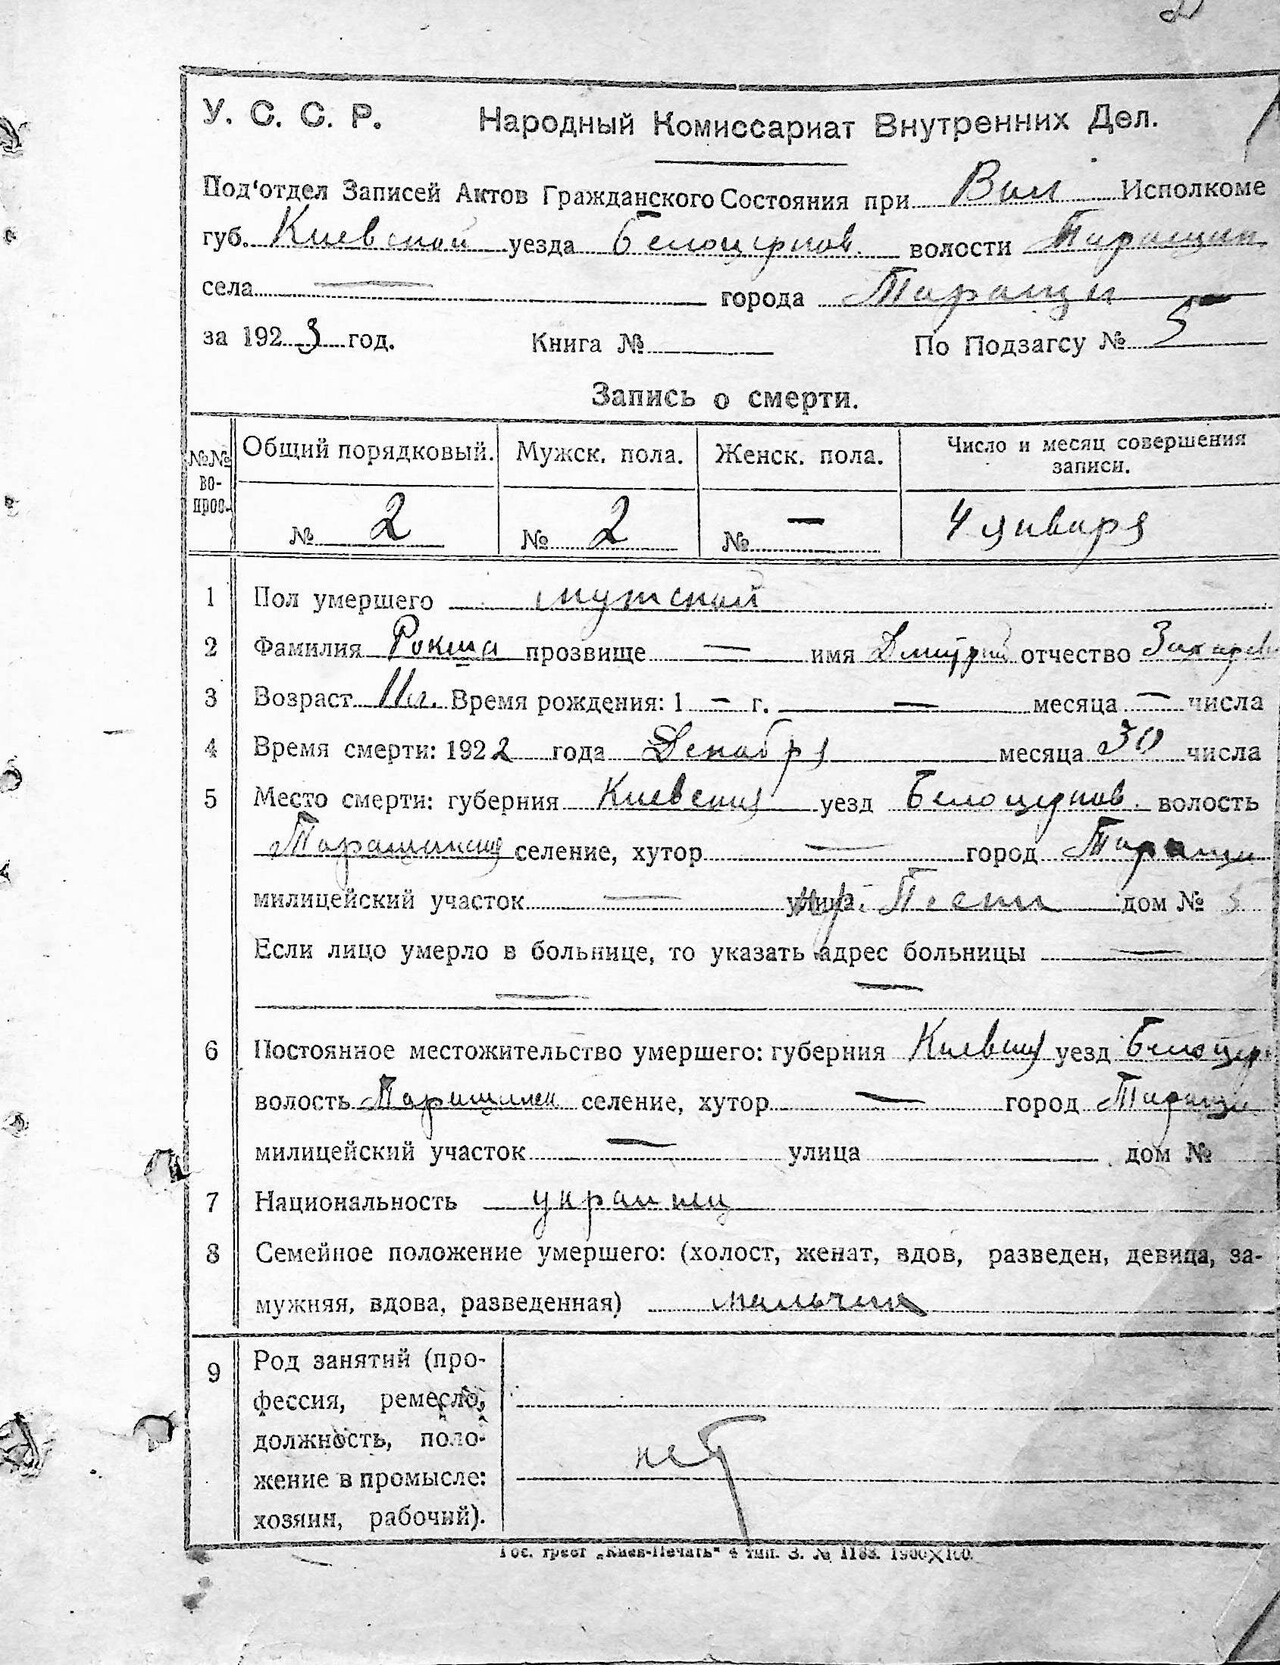 У. С. С. Р. Народный Комиссариат Внутренних Дел.
Под'отдел Записей Актов Гражданского Состояния при Вол Исполкоме
губ. Киевской уезда Белоцерков. волости Таращан.
села — города Таращи
за 1923 год. Книга № По Подзагсу № 5
Запись о смерти.
№№ вопрос. Общий порядковый. Мужск. пола. Женск. пола. Число и месяц совершения записи.
№ 2 № 2 № — 4 января
1 Пол умершего мужской
2 Фамилия прозвище — имя Дмитрий отчество Захаров
3 Возраст Время рождения: 1 — г. — месяца — числа
4 Время смерти: 1922 года Декабря месяца 30 числа
5 Место смерти: губерния Киевская уезд Белоцерков. волость
Таращанская селение, хутор — город Таращи
милицейский участок — улица дом № 5
Если лицо умерло в больнице, то указать адрес больницы —
— —
6 Постоянное местожительство умершего: губерния Киевская уезд Белоцер
волость Таращанск селение, хутор — город Таращи
милицейский участок — улица дом №
7 Национальность украинец
8 Семейное положение умершего: (холост, женат, вдов, разведен, девица, за-
мужняя, вдова, разведенная) мальчик
9 Род занятий (про-
фессия, ремесло,
должность, поло-
жение в промысле:
хозяин, рабочий).
нет
Гос. трест „Киев-Печать“ 4 тип. З. № 1183. 1900×100.